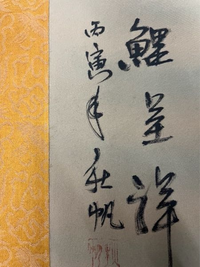 鲤呈祥
丙寅年秋帆